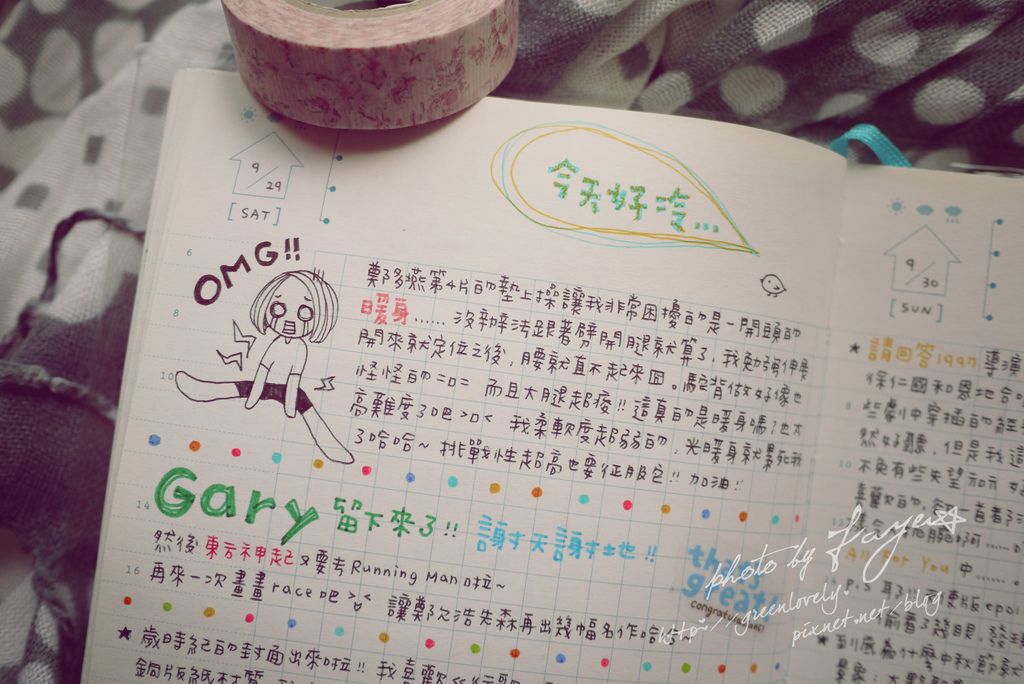 9/29
[SAT]
今天好冷...
OMG!!
6
鄭多燕第4片的墊上操讓我非常困擾的是一開頭的
8
暖身...... 沒辦法跟著劈開腿就算了,我勉強伸展
開來就定位之後,腰就直不起來囧。駝背做好像也
10
怪怪的=口= 而且大腿超痠!!這真的是暖身嗎?也太
高難度了吧>口< 我柔軟度超弱的,光暖身就累死我
了哈哈~ 挑戰性超高也要征服它!! 加油!!
14
Gary 留下來了!! 謝天謝地!!
然後東方神起又要考Running Man啦~
16
再來一次畫畫race吧 讓鄭允浩先森再出幾幅名作哈
★歲時紀的封面出來啦!! 我喜歡
銅版紙材質
9/30
[SUN]
★請回答1997 導演
徐仁國和恩地合
些劇中穿插的經
然好聽,但是我這
不免有些失望
喜歡的
All For You 中......。
P.S 耳
前看了幾眼,發
到底為什麼中秋節
great!
congratulations!
photo by faye☆
http://greenlovely.
pixnet.net/blog